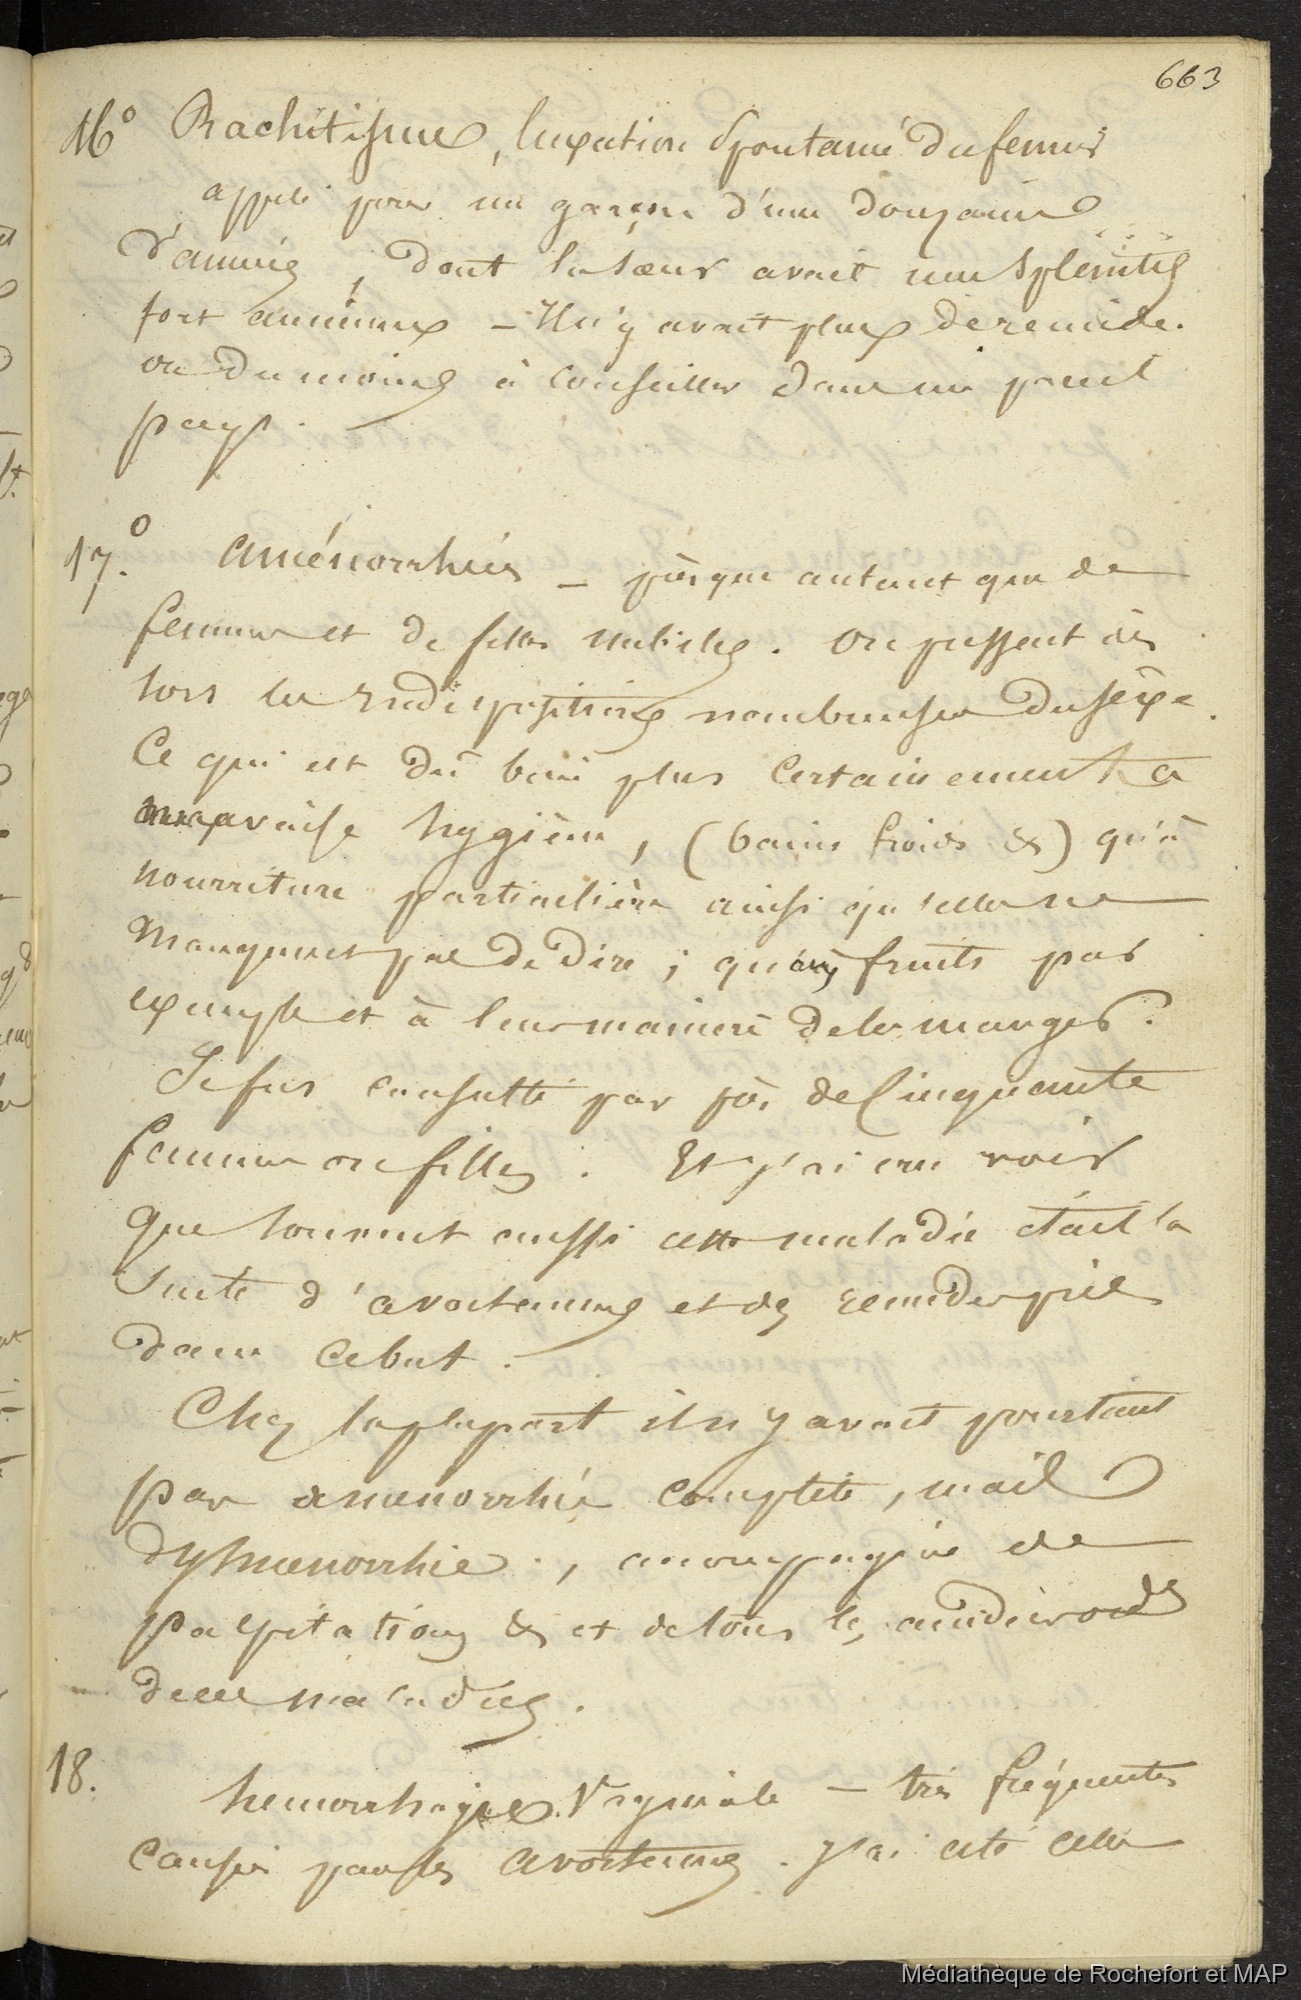 663
16° Rachitisme, luxation spontané du femur
appelé pour un garçon d'une douzaine
d'années, dont la sœur avait une splénite
fort ancienne – Il n'y avait plus de remède
ou du moins à conseiller dans un pareil
pays.
17.° aménorrhées – presque autant que de
femmes et de filles nubiles. On pressent dès
lors les indispositions nombreuses du sexe.
Ce qui est dû bien plus certainement à
mauvaise hygiène, (bains froids &) qu'à
nourriture particulière ainsi qu'elles ne
manquent pas de dire ; qu'aux fruits par
exemple et à leur manière de les manger.
Je fus consulté par près de Cinquante
femmes ou filles. Et j'ai cru voir
que souvent aussi cette maladie était la
suite d'avortemens et des remèdes pris
dans ce but.
Chez la plupart il n'y avait pourtant
pas aménorrhée complète, mais
dysmenorrhie, accompagnée de
palpitations & et de tous les
maladies.
18. hemorrhagies Vaginale – très fréquentes
Causées par les avortemens. J'ai cité celle